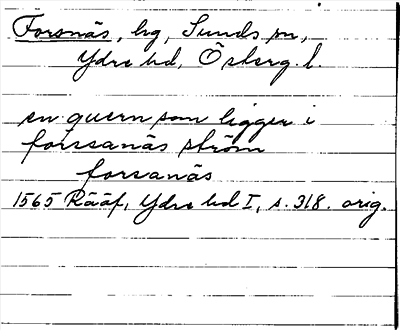 Forsnäs, hg, Sunds sn,
Ydre hd, Österg. l.
en quern som ligger i
forssanäs ström
forsanäs
1565 Rääf, Ydre hd I, s. 318. orig.